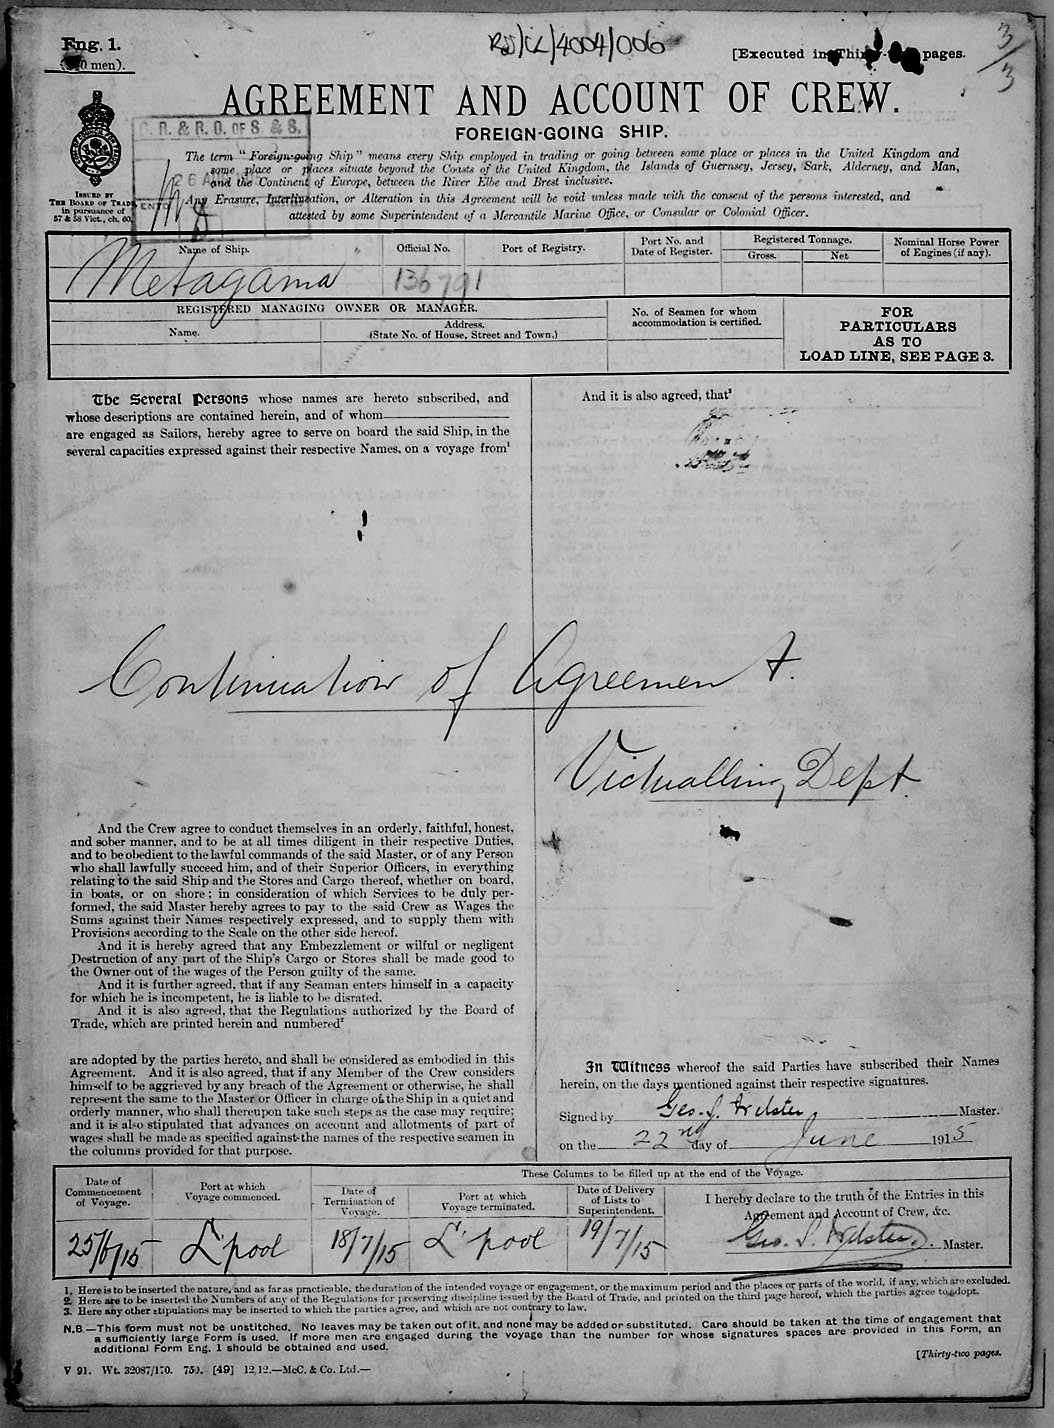 Eng. 1.
RS/CL/4004/006
[Executed in Thirty-two pages.
3/3
AGREEMENT AND ACCOUNT OF CREW.
FOREIGN-GOING SHIP.
C. R. & R. O. OF S. & S.
26
ISSUED BY
THE BOARD OF TRADE
in pursuance of
57 & 58 Vict., ch. 60.
The term "Foreign-going Ship" means every Ship employed in trading or going between some place or places in the United Kingdom and
some place or places situate beyond the Coasts of the United Kingdom, the Islands of Guernsey, Jersey, Sark, Alderney, and Man,
and the Continent of Europe, between the River Elbe and Brest inclusive.
Any Erasure, Interlineation, or Alteration in this Agreement will be void unless made with the consent of the persons interested, and
attested by some Superintendent of a Mercantile Marine Office, or Consular or Colonial Officer.
Name of Ship.
Official No.
Port of Registry.
Port No. and
Date of Register.
Registered Tonnage.
Gross.
Net
Nominal Horse Power
of Engines (if any).
Metagama
136791
REGISTERED MANAGING OWNER OR MANAGER.
Name.
Address.
(State No. of House, Street and Town.)
No. of Seamen for whom
accommodation is certified.
FOR
PARTICULARS
AS TO
LOAD LINE, SEE PAGE 3.
The Several Persons whose names are hereto subscribed, and
whose descriptions are contained herein, and of whom
are engaged as Sailors, hereby agree to serve on board the said Ship, in the
several capacities expressed against their respective Names, on a voyage from¹
And it is also agreed, that³
Continuation of Agreement.
Victualling Dept.
And the Crew agree to conduct themselves in an orderly, faithful, honest,
and sober manner, and to be at all times diligent in their respective Duties,
and to be obedient to the lawful commands of the said Master, or of any Person
who shall lawfully succeed him, and of their Superior Officers, in everything
relating to the said Ship and the Stores and Cargo thereof, whether on board,
in boats, or on shore; in consideration of which Services to be duly per-
formed, the said Master hereby agrees to pay to the said Crew as Wages the
Sums against their Names respectively expressed, and to supply them with
Provisions according to the Scale on the other side hereof.
And it is hereby agreed that any Embezzlement or wilful or negligent
Destruction of any part of the Ship's Cargo or Stores shall be made good to
the Owner out of the wages of the Person guilty of the same.
And it is further agreed, that if any Seaman enters himself in a capacity
for which he is incompetent, he is liable to be disrated.
And it is also agreed, that the Regulations authorized by the Board of
Trade, which are printed herein and numbered²
are adopted by the parties hereto, and shall be considered as embodied in this
Agreement. And it is also agreed, that if any Member of the Crew considers
himself to be aggrieved by any breach of the Agreement or otherwise, he shall
represent the same to the Master or Officer in charge of the Ship in a quiet and
orderly manner, who shall thereupon take such steps as the case may require;
and it is also stipulated that advances on account and allotments of part of
wages shall be made as specified against the names of the respective seamen in
the columns provided for that purpose.
In Witness whereof the said Parties have subscribed their Names
herein, on the days mentioned against their respective signatures.
Signed by Geo. S. Webster, Master.
on the 22nd day of June 1915
Date of
Commencement
of Voyage.
Port at which
Voyage commenced.
These Columns to be filled up at the end of the Voyage.
Date of
Termination of
Voyage.
Port at which
Voyage terminated.
Date of Delivery
of Lists to
Superintendent.
I hereby declare to the truth of the Entries in this
Agreement and Account of Crew, &c.
25/6/15
L'pool
18/7/15
L'pool
19/7/15
Geo. S. Webster. Master.
1. Here is to be inserted the nature, and as far as practicable, the duration of the intended voyage or engagement, or the maximum period and the places or parts of the world, if any, which are excluded.
2. Here are to be inserted the Numbers of any of the Regulations for preserving discipline issued by the Board of Trade, and printed on the third page hereof, which the parties agree to adopt.
3. Here any other stipulations may be inserted to which the parties agree, and which are not contrary to law.
N.B.—This form must not be unstitched. No leaves may be taken out of it, and none may be added or substituted. Care should be taken at the time of engagement that
a sufficiently large Form is used. If more men are engaged during the voyage than the number for whose signatures spaces are provided in this Form, an
additional Form Eng. 1 should be obtained and used.
V 91. Wt. 32087/170. 750. [49] 12,12.—McC. & Co. Ltd.—
[Thirty-two pages.